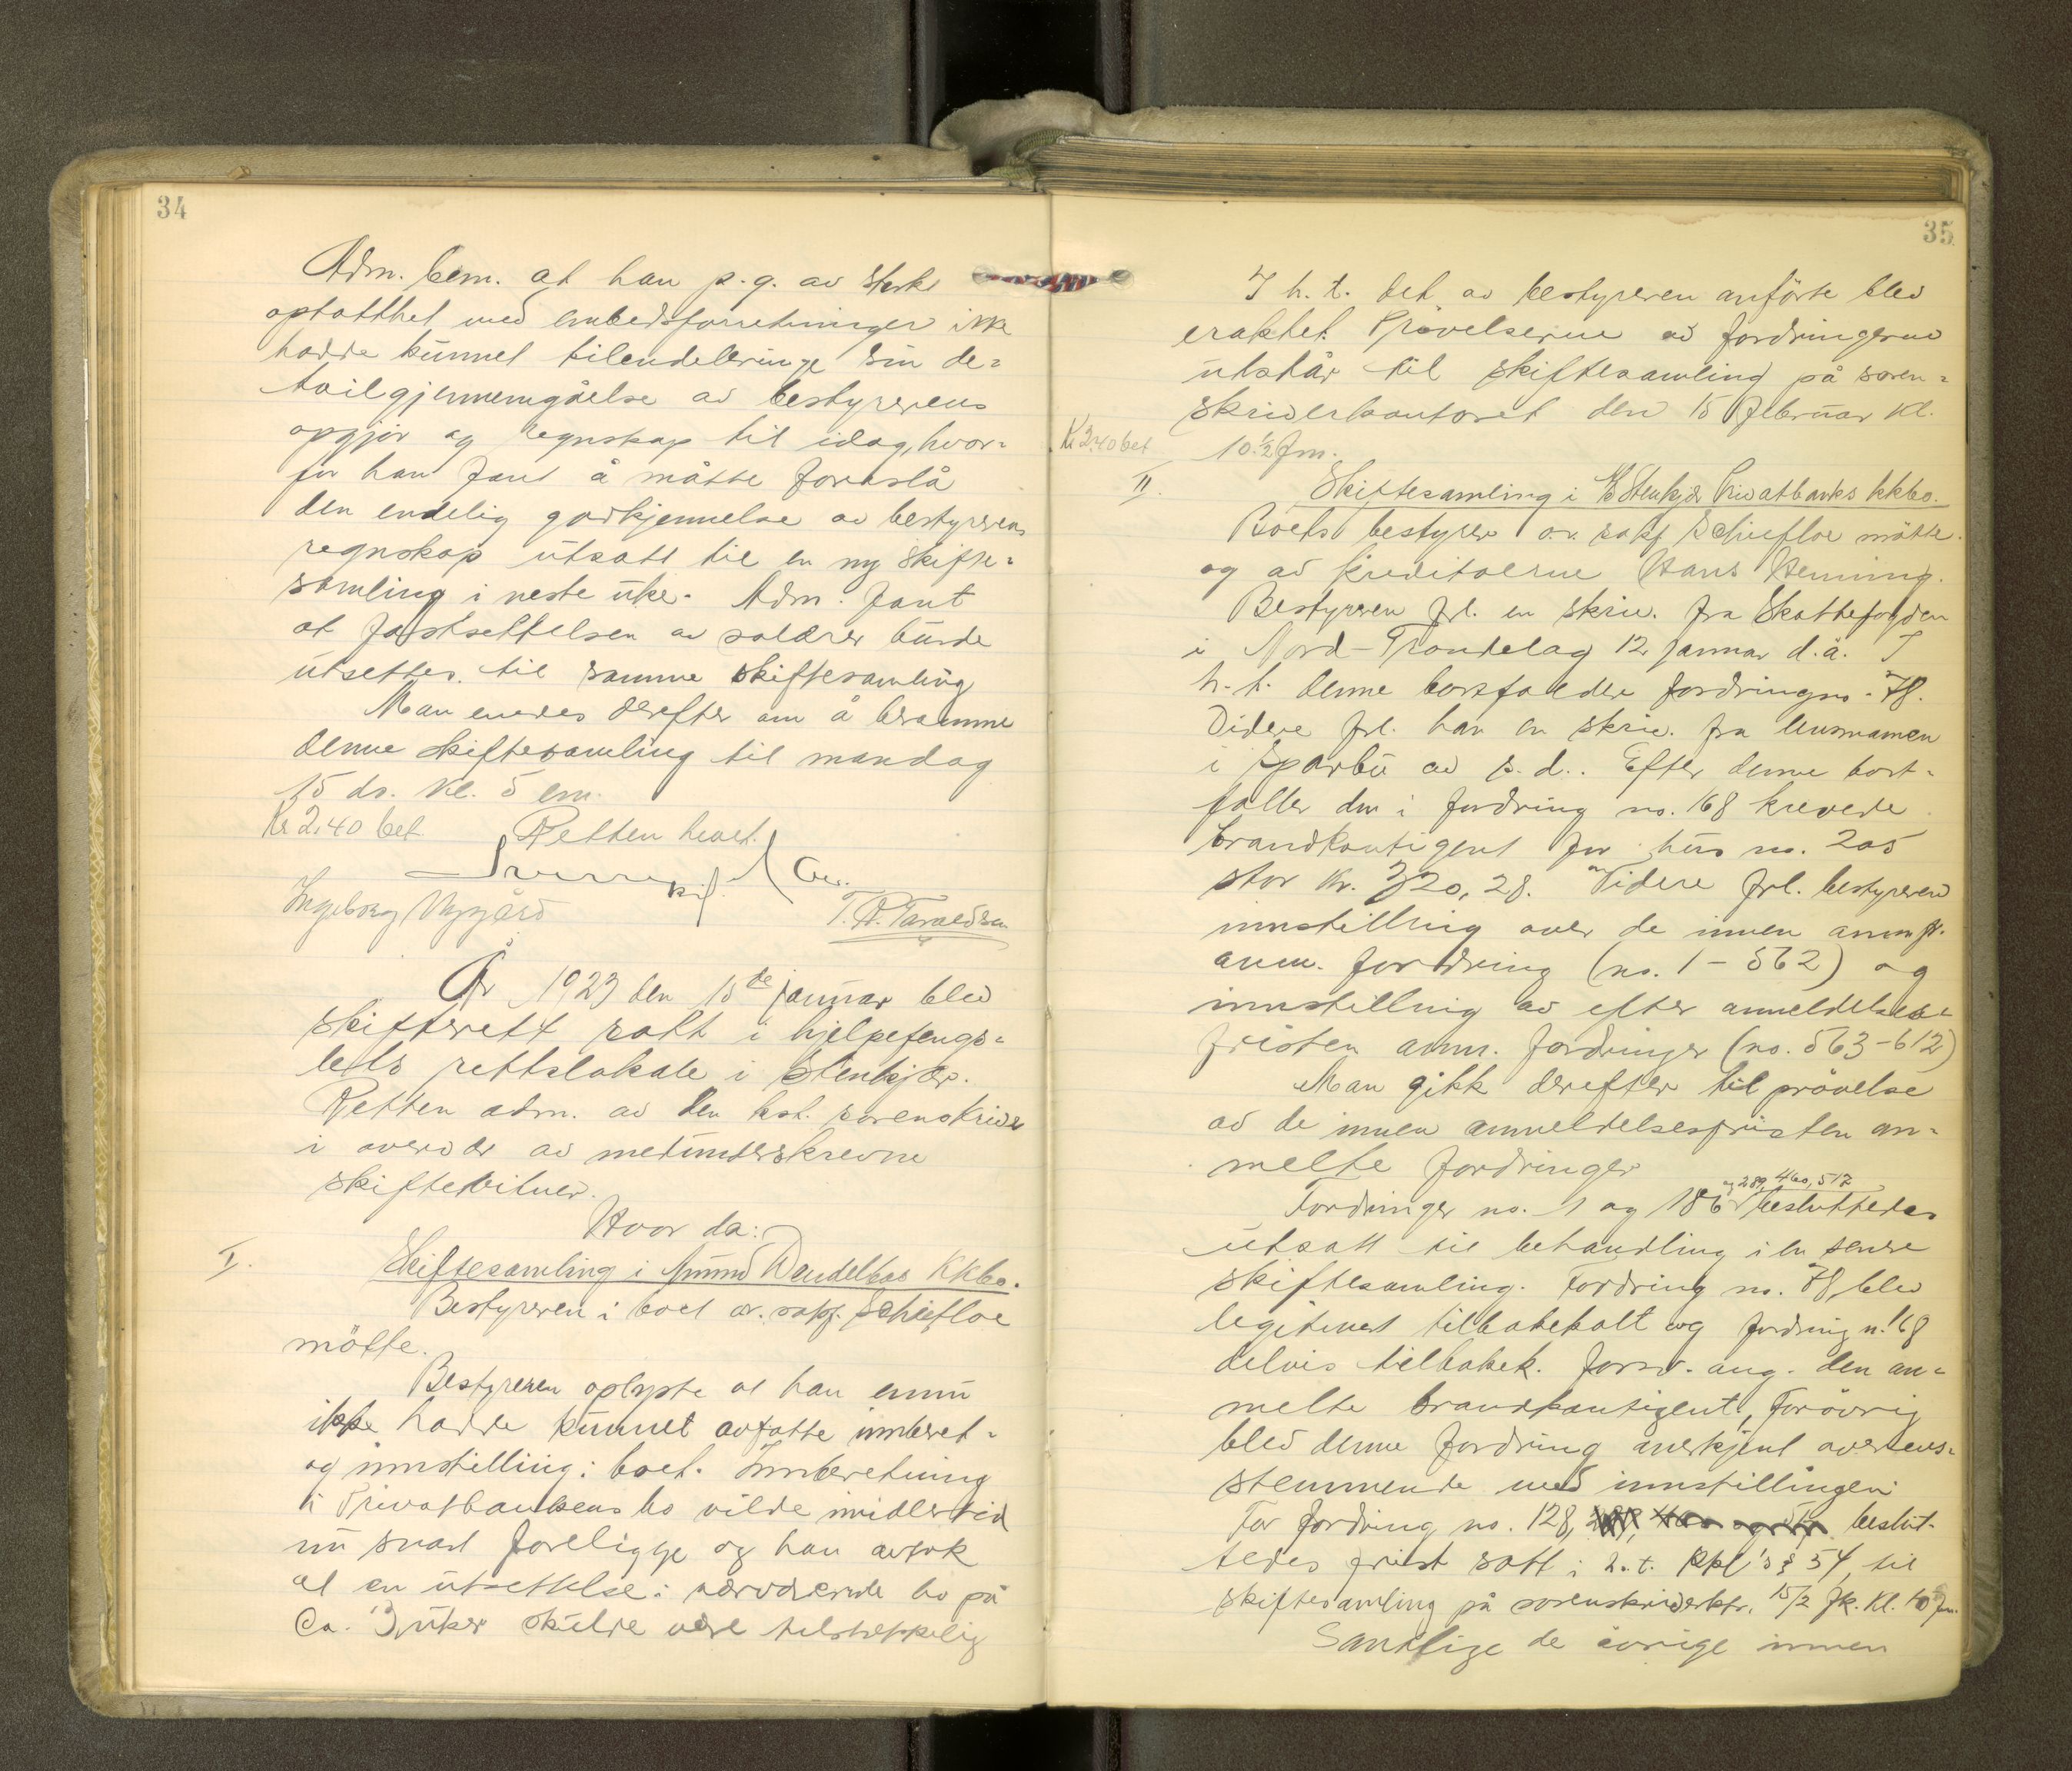 34
Adm. bem. at han p.g. av sterk
optatthet med embedsforretninger ikke
hadde kunnet tilendebringe sin de-
tailgjennemgåelse av bestyrerens
opgjör og regnskap til idag, hvor-
for han fant å måtte foreslå
den endelig godkjennelse av bestyrerens
regnskap utsatt til en ny skifte-
samling i neste uke. Adm. fant
at fastsettelsen av salærer burde
utsettes til samme skiftesamling
Man enedes derefter om å beramme
denne skiftesamling til mandag
15 ds. kl. 5 em.
Kr 2.40 bet. Retten hevet.
Ingeborg Nygård T. A. Taraldsen
År 1923 den 15de januar blev
skifterett satt i hjelpefengs-
lets rettslokale i Stenkjær.
Retten adm. av den kst. sorenskriver
i overvær av medunderskrevne
skiftevitner.
Hvor da:
I. Skiftesamling i Amund Wendelbos kkbo.
Bestyreren i boet o.r. sakf. Schiefloe
mötte.
Bestyreren oplyste at han ennu
ikke hadde kunnet avfatte innberet-
og innstilling i boet. Innberetning
i Privatbankens bo vilde imidlertid
nu snart foreligge og han antok
at en utsettelse i nærværende bo på
Ca. 3 uker skulde være tilstrekkelig
35
I h.t. det av bestyreren anförte blev
eraktet: Prövelserne av fordringerne
utstår til skiftesamling på soren-
skriverkontoret den 15 februar kl.
Kr 2.40 bet 10 1/2 fm.
II. Skiftesamling i Stenkjær Privatbanks kkbo.
Boets bestyrer o.r. sakf Schiefloe mötte.
og av kreditorerne Hans Henning.
Bestyreren frl. en skriv. fra Skattefogden
i Nord-Trøndelag 12 januar d.å. I
h.t. denne bortfalder fordring no. 78.
Videre frl. han en skriv. fra lensmannen
i Sparbu av s.d.. Efter denne bort-
faller den i fordring no. 168 krevede
brandkontigent for hus no. 205
stor kr. 320,28. Videre frl. bestyreren
innstilling over de innen anm.fr.
anm. fordring (no. 1 - 562) og
innstilling av efter anmeldelses-
fristen anm. fordringer (no. 563-612)
Man gikk derefter til prövelse
av de innen anmeldelsesfristen an-
melte fordringer
og 289, 460, 517
Fordringer no. 1 og 186 besluttedes
utsatt til behandling i en senere
skiftesamling. Fordring no. 78 blev
legitimert tilbakekalt og fordring n. 168
delvis tilbakek. forsv. ang. den an-
melte brandkontigent, Forövrig
blev denne fordring anerkjent overens-
stemmende med innstillingen
For fordring no. 128, beslut-
tedes frist satt i h.t. kkl's § 54, til
skiftesamling på sorenskriverktr. 15/2 fk. kl. 10 fm.
Samtlige de övrige innen